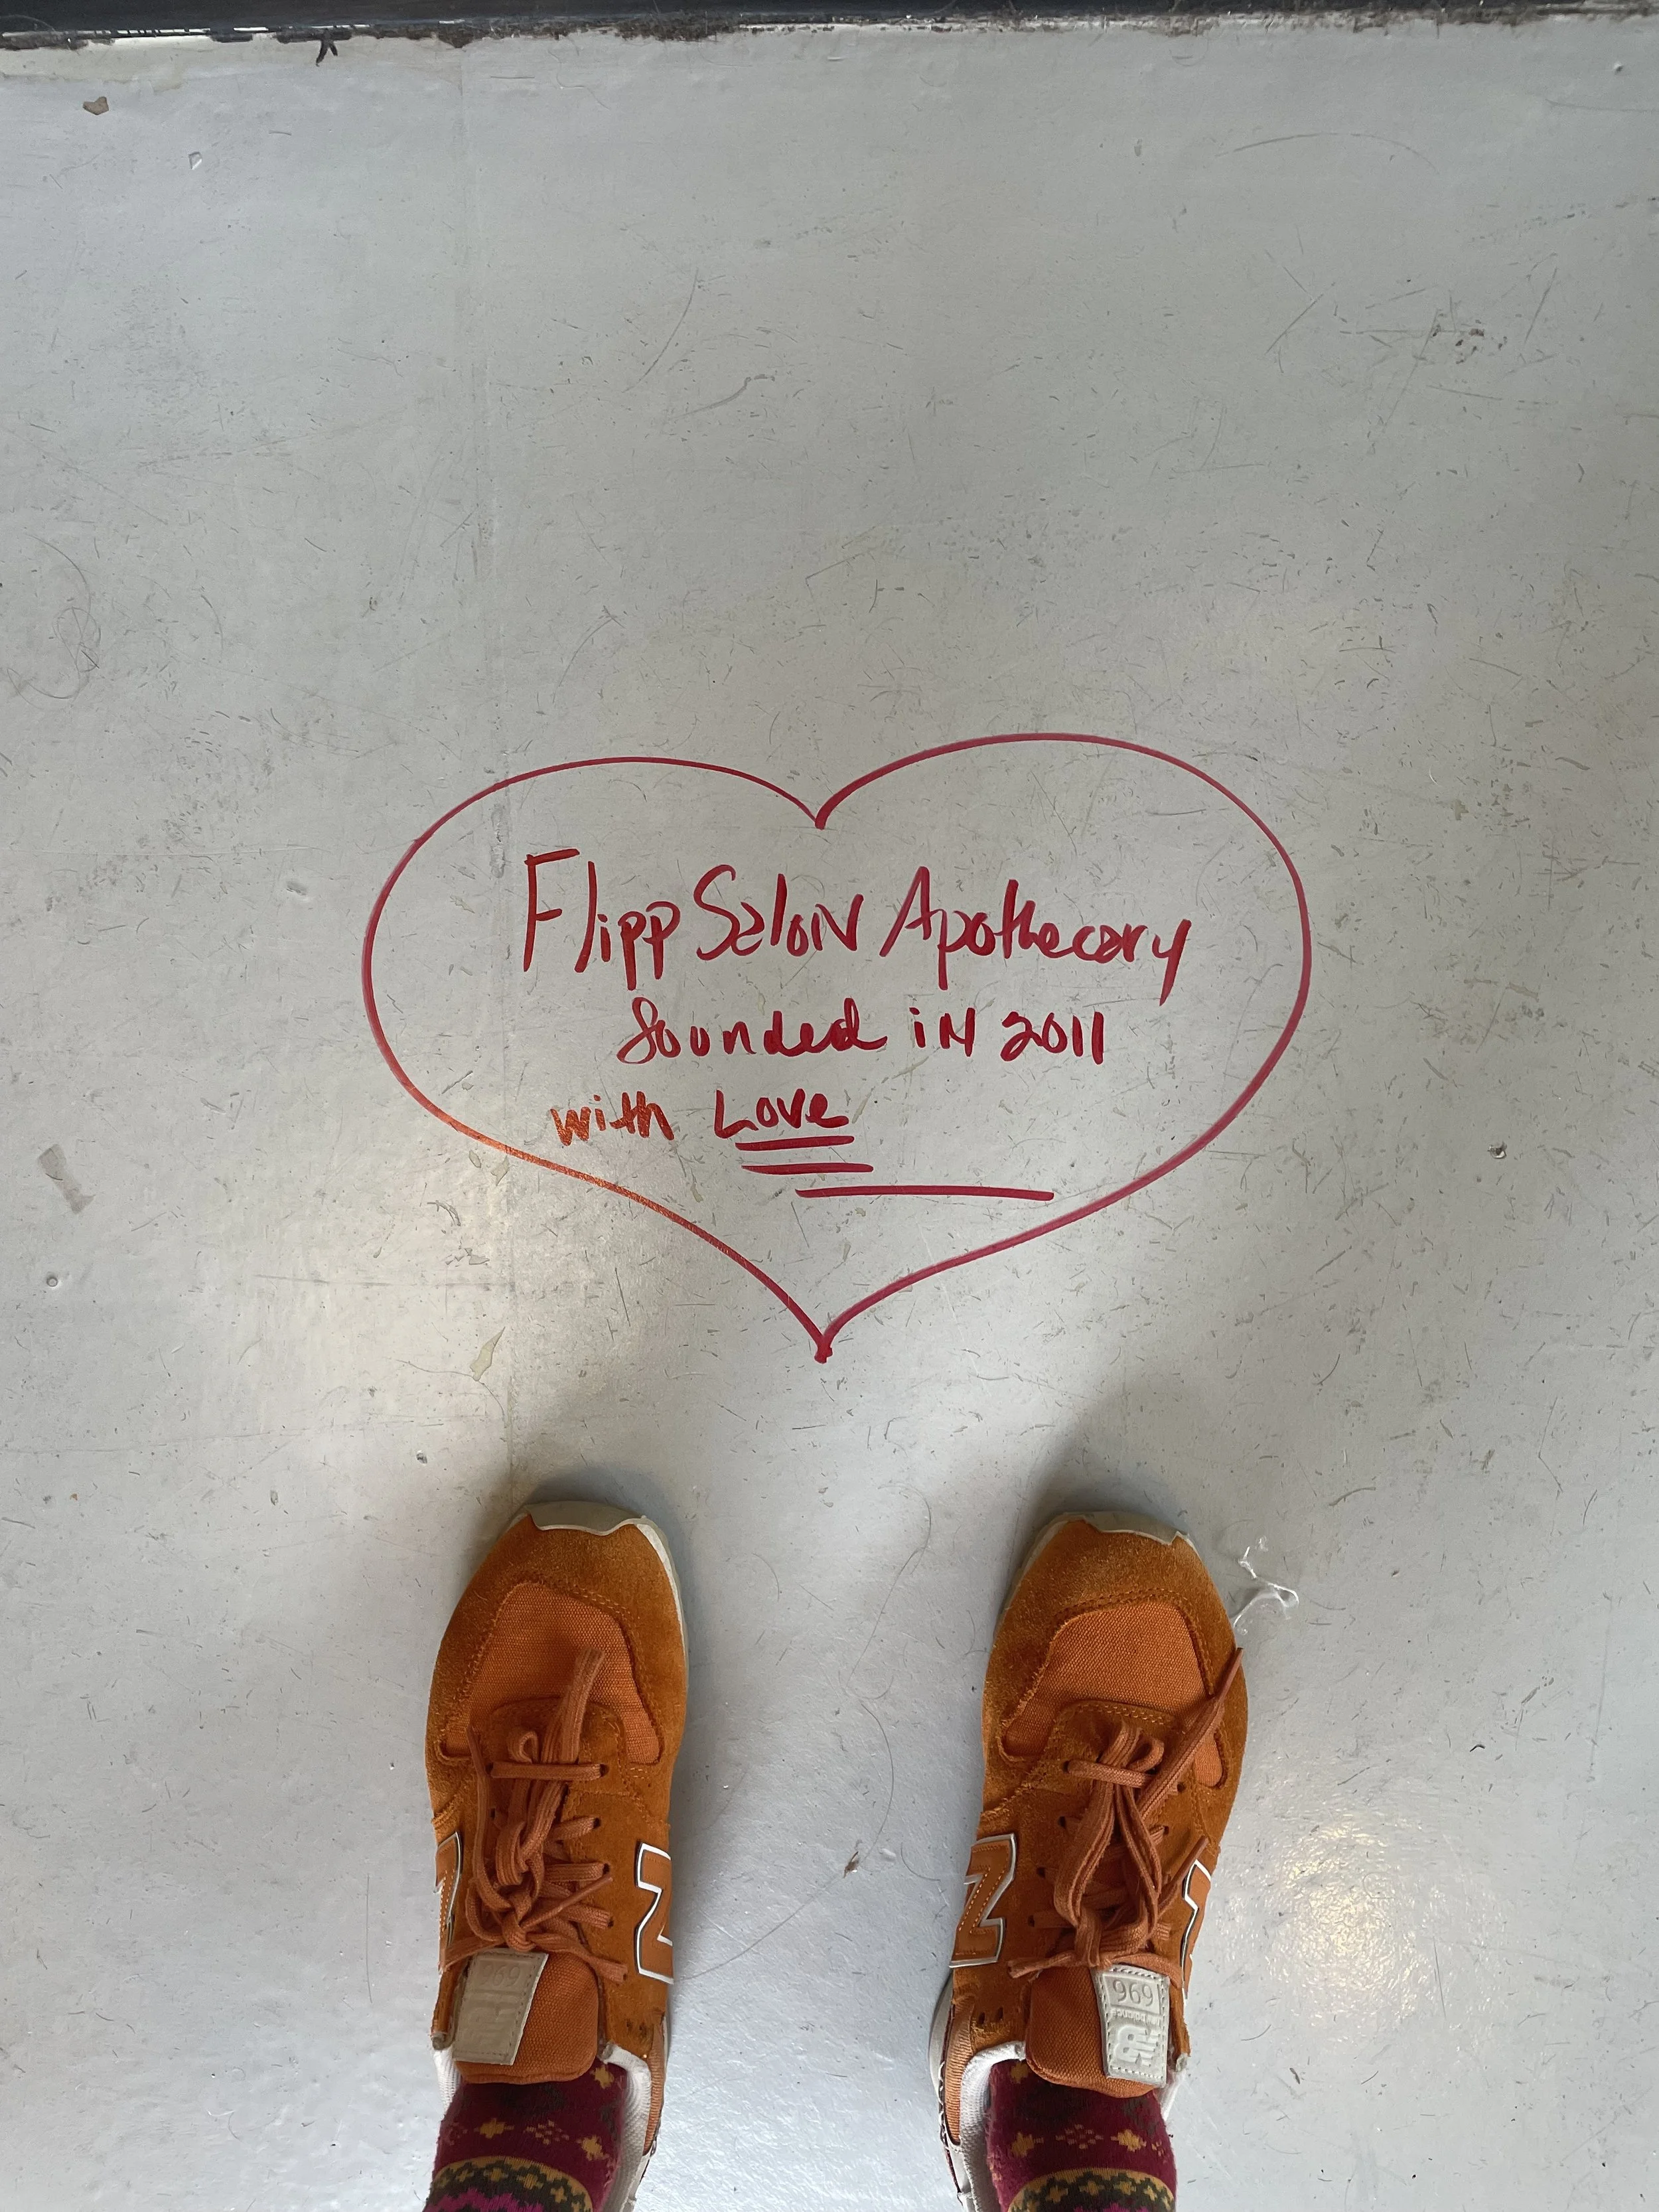 Flipp Salon Apothecary
founded in 2011
with Love
N N
969
969